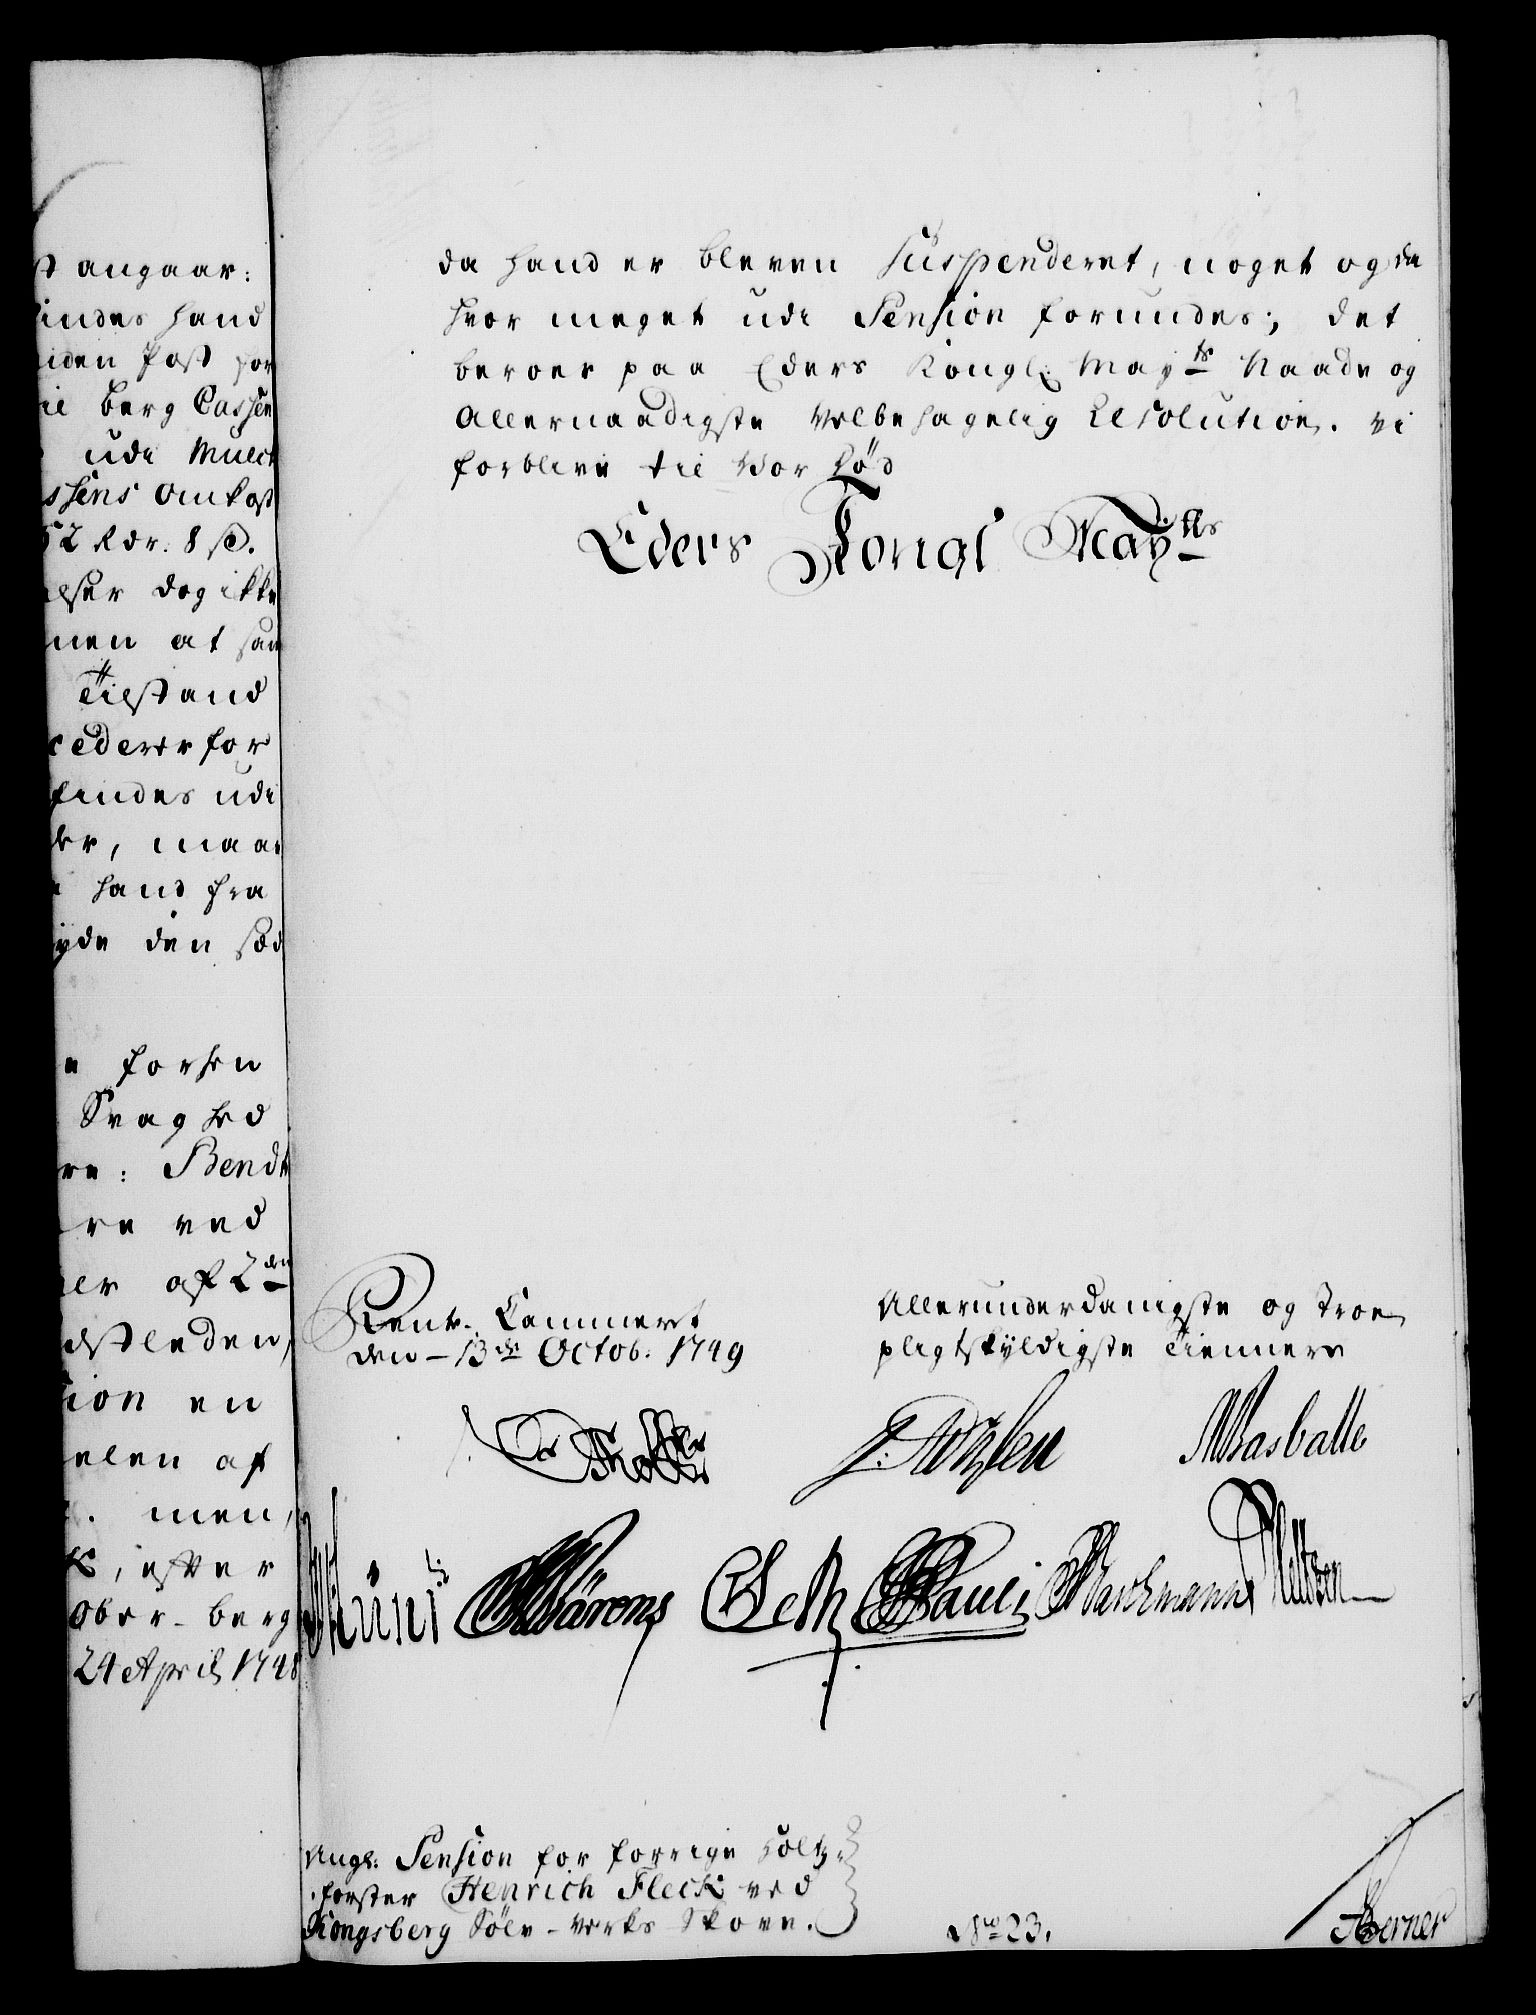 st angaar:
findes hand
siden Post for
til Berg Cassen
udi Muelct
ssens Omkost
52 Rdr: 8 s.
elser dog ikke
men at saa
Tilstand
cederer for
findes udi
der, maae
hand fra
nyde den sæd
forhen
Svaghed
re: Bendt
re ved
ler af 2den
idstleden,
sion en
elen af
men,
efter
Ober-berg
24 April 1748
da hand er bleven Suspenderet, noget og da
hvor meget udi Pension forundes; det
beroer paa Eders Kongl: Mayts Naade og
Allernaadigste Velbehagelig Resolution. vi
forblive til Vor Død
Eders Kongl Mayts
Rente Cammeret
den 13de Octob. 1749
Allerunderdanigste og Troe
pligtskyldigste Tiennere
Rasballe
Wärens Seth Pauli Barchmann Neltzen
Angl: Pension for forrige Holtz-
forster Henrich Fleck ved
Kongsberg Sölv-Verks Skove.
No 23.
Berner